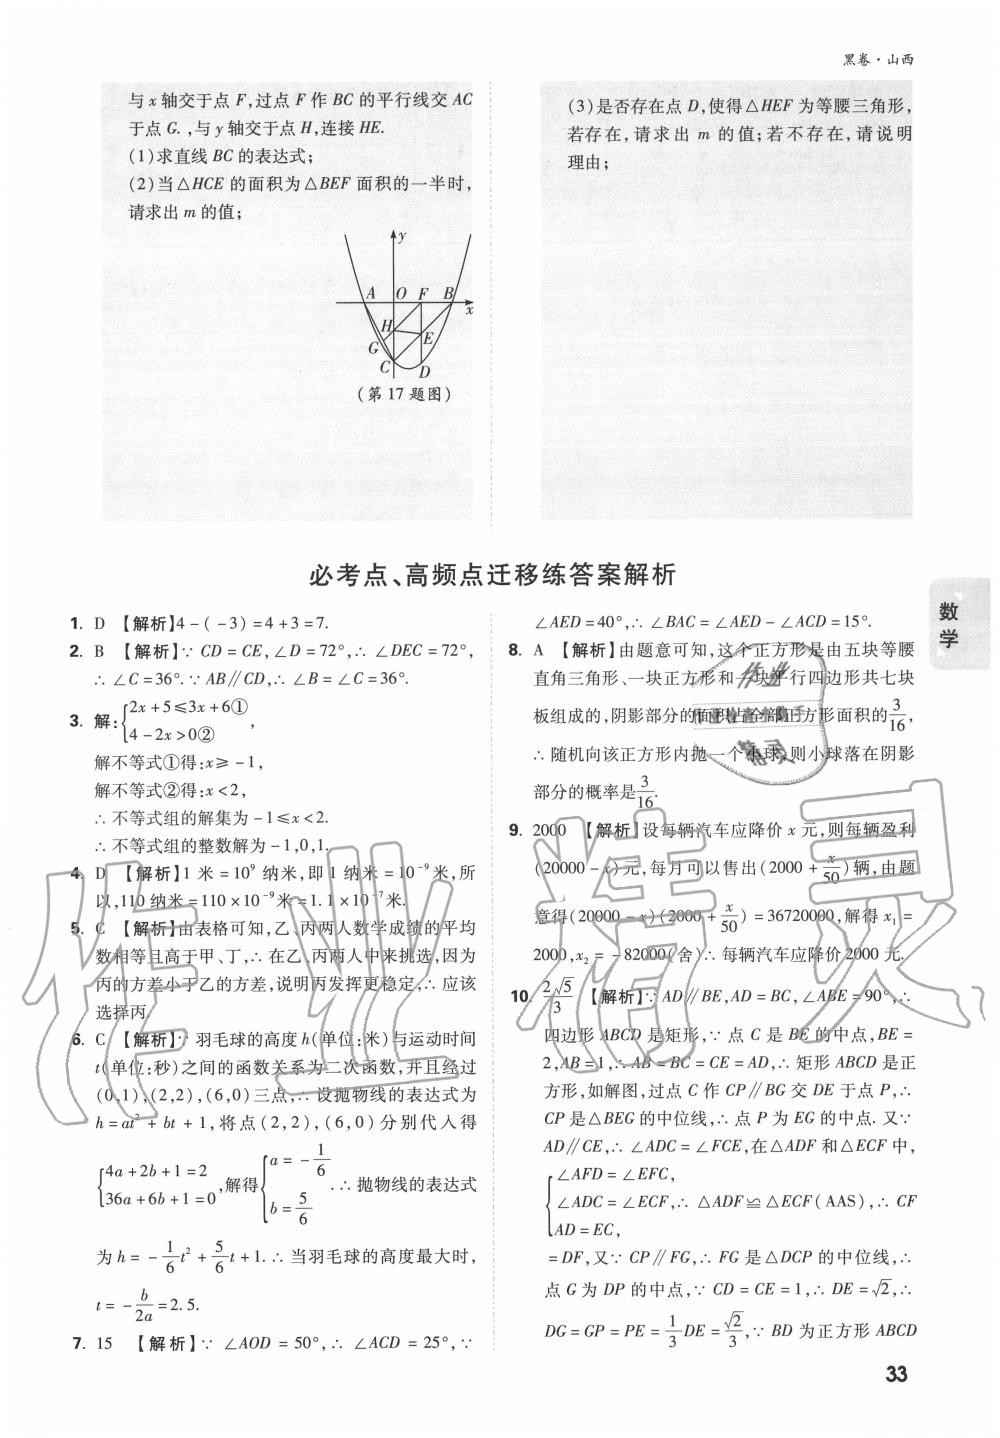 黑卷·山西
与x轴交于点F,过点F作BC的平行线交AC
于点G.,与y轴交于点H,连接HE.
(1)求直线BC的表达式;
(2)当△HCE的面积为△BEF面积的一半时,
请求出m的值;
y
A O F B
x
H
E
G
C
D
(第17题图)
(3)是否存在点D,使得△HEF为等腰三角形,
若存在,请求出m的值;若不存在,请说明
理由;
必考点、高频点迁移练答案解析
数学
1. D 【解析】4-(-3)=4+3=7.
2. B 【解析】∵CD=CE,∠D=72°,∴∠DEC=72°,
∴∠C=36°.∵AB∥CD,∴∠B=∠C=36°.
3. 解:{2x+5≤3x+6①
4-2x>0② ,
解不等式①得:x≥-1,
解不等式②得:x<2,
∴不等式组的解集为-1≤x<2.
∴不等式组的整数解为-1,0,1.
4. D 【解析】1米=10⁹纳米,即1纳米=10⁻⁹米,所
以,110纳米=110×10⁻⁹米=1.1×10⁻⁷米.
5. C 【解析】由表格可知,乙、丙两人数学成绩的平均
数相等且高于甲、丁,∴在乙、丙两人中来挑选,因为
丙的方差小于乙的方差,说明丙发挥更稳定,∴应该
选择丙.
6. C 【解析】∵羽毛球的高度h(单位:米)与运动时间
t(单位:秒)之间的函数关系为二次函数,并且经过
(0,1),(2,2),(6,0)三点,∴设抛物线的表达式为
h=at²+bt+1,将点(2,2),(6,0)分别代人得
{4a+2b+1=2
36a+6b+1=0 ,解得{a=-1/6
b=5/6 .∴抛物线的表达式
为h=-1/6t²+5/6t+1.∴当羽毛球的高度最大时,
t=-b/2a=2.5.
7. 15 【解析】∵∠AOD=50°,∴∠ACD=25°,∵
∠AED=40°,∴∠BAC=∠AED-∠ACD=15°.
8. A 【解析】由题意可知,这个正方形是由五块等腰
直角三角形、一块正方形和一块平行四边形共七块
板组成的,阴影部分的面积占全部正方形面积的3/16,
∴随机向该正方形内抛一个小球,则小球落在阴影
部分的概率是3/16.
9. 2000 【解析】设每辆汽车应降价x元,则每辆盈利
(20000-x)元,每月可以售出(2000+x/50)辆,由题
意得(20000-x)(2000+x/50)=36720000,解得x₁=
2000,x₂=-82000(舍)∴每辆汽车应降价2000元.
10. 2√5/3 【解析】∵AD∥BE,AD=BC,∠ABE=90°,∴
四边形ABCD是矩形,∵点C是BE的中点,BE=
2,AB=1,∴AB=BC=CE=AD,∴矩形ABCD是正
方形,如解图,过点C作CP∥BG交DE于点P,∴
CP是△BEG的中位线,∴点P为EG的中点.又∵
AD∥CE,∴∠ADC=∠FCE,在△ADF和△ECF中,
{∠AFD=∠EFC,
∠ADC=∠ECF,∴△ADF≌△ECF(AAS),∴CF
AD=EC,
=DF,又∵CP∥FG,∴FG是△DCP的中位线,∴
点G为DP的中点,∵CD=CE=1,∴DE=√2,∴
DG=GP=PE=1/3DE=√2/3,∵BD为正方形ABCD
33
作业精灵